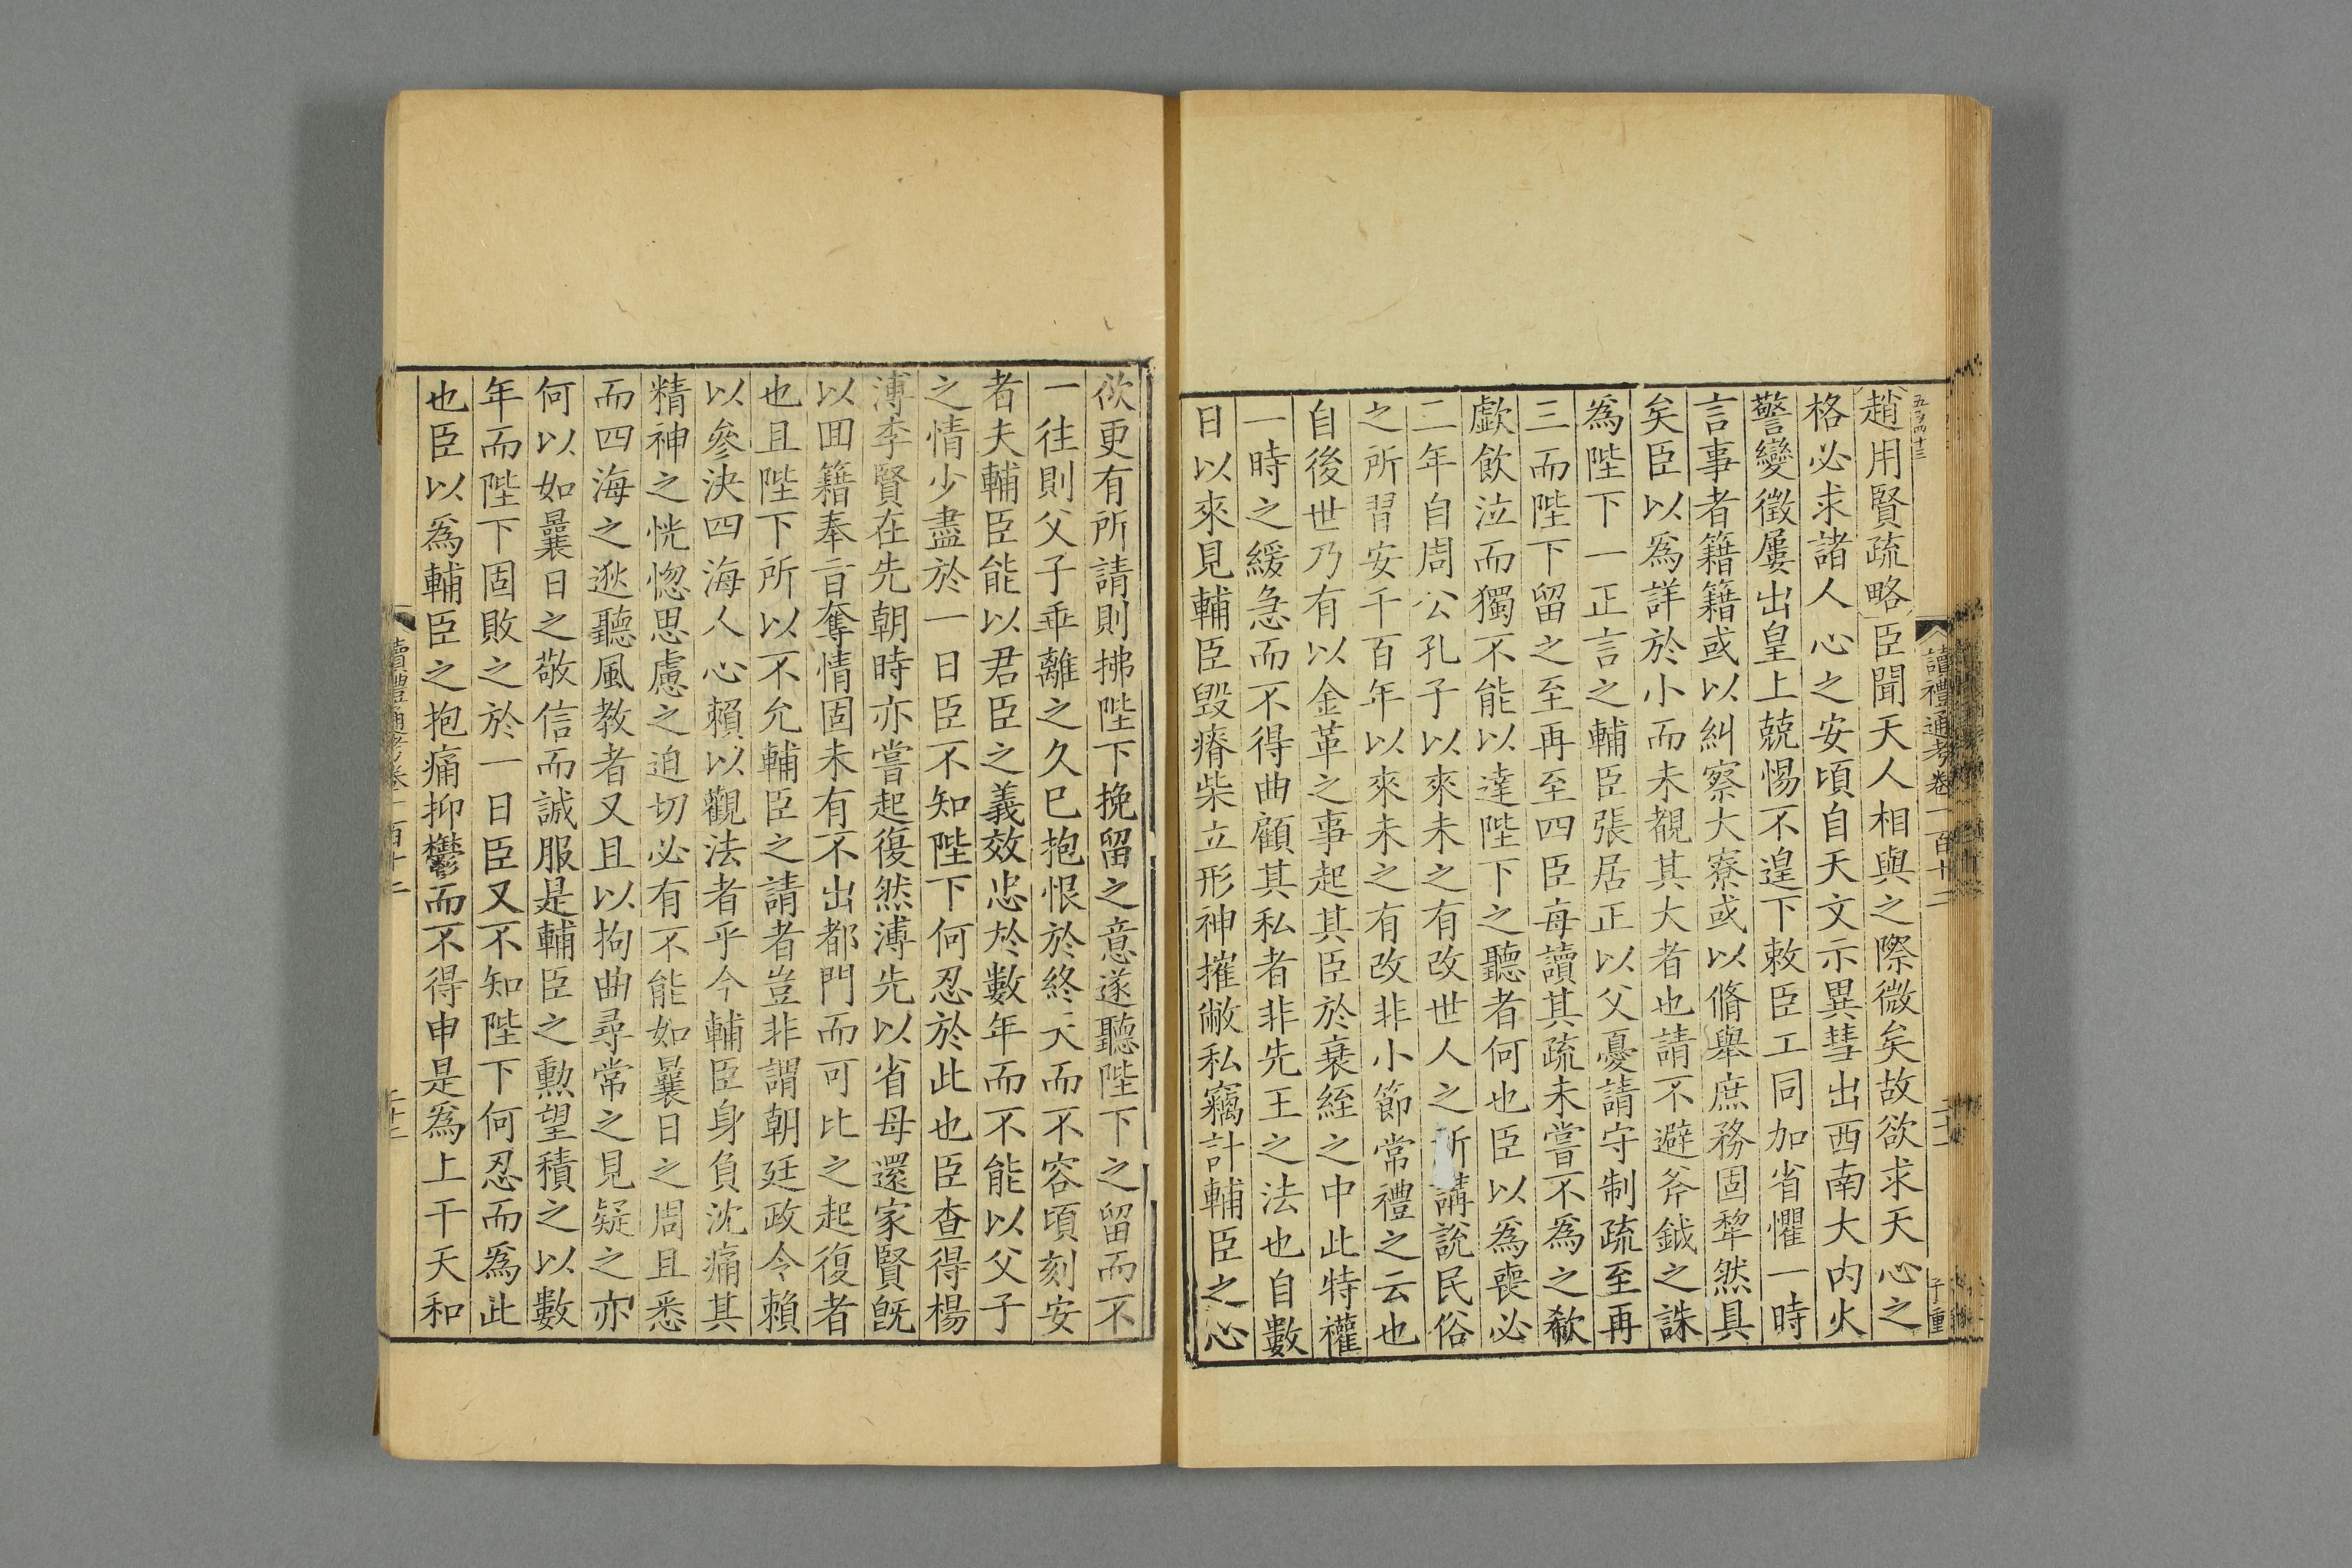 讀禮通考卷一百十二
子重
趙用賢疏略臣聞天人相與之際微矣故欲求天心之
格必求諸人心之安頃自天文示異彗出西南大內火
警變徵屢出皇上兢惕不遑下敕臣工同加省懼一時
言事者籍籍或以糾察大寮或以脩舉庶務固犂然具
矣臣以爲詳於小而未覩其大者也請不避斧鉞之誅
爲陛下一正言之輔臣張居正以父憂請守制疏至再
三而陛下留之至再至四臣每讀其疏未嘗不爲之欷
歔飲泣而獨不能以達陛下之聽者何也臣以爲喪必
二年自周公孔子以來未之有改世人之所講說民俗
之所習安千百年以來未之有改非小節常禮之云也
自後世乃有以金革之事起其臣於衰絰之中此特權
一時之緩急而不得曲顧其私者非先王之法也自數
日以來見輔臣毀瘠柴立形神摧敝私竊計輔臣之心
欲更有所請則拂陛下挽留之意遂聽陛下之留而不
一往則父子乖離之久已抱恨於終天而不容頃刻安
者夫輔臣能以君臣之義效忠於數年而不能以父子
之情少盡於一日臣不知陛下何忍於此也臣查得楊
溥李賢在先朝時亦嘗起復然溥先以省母還家賢旣
以回籍奉旨奪情固未有不出都門而可比之起復者
也且陛下所以不允輔臣之請者豈非謂朝廷政令賴
以參決四海人心賴以觀法者乎今輔臣身負沈痛其
精神之恍惚思慮之迫切必有不能如曩日之周且悉
而四海之逖聽風教者又且以拘曲尋常之見疑之亦
何以如曩日之敬信而誠服是輔臣之勲望積之以數
年而陛下固敗之於一日臣又不知陛下何忍而爲此
也臣以爲輔臣之抱痛抑鬱而不得申是爲上干天和
讀禮通考卷一百十二